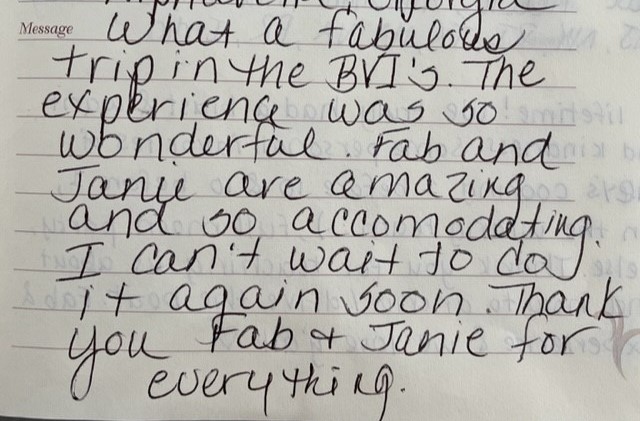 Alpharetta, Georgia
Message What a fabulous
trip in the BVI's. The
experience was so
wonderful. Fab and
Janie are amazing
and so accomodating.
I can't wait to do
it again soon. Thank
you Fab & Janie for
everything.